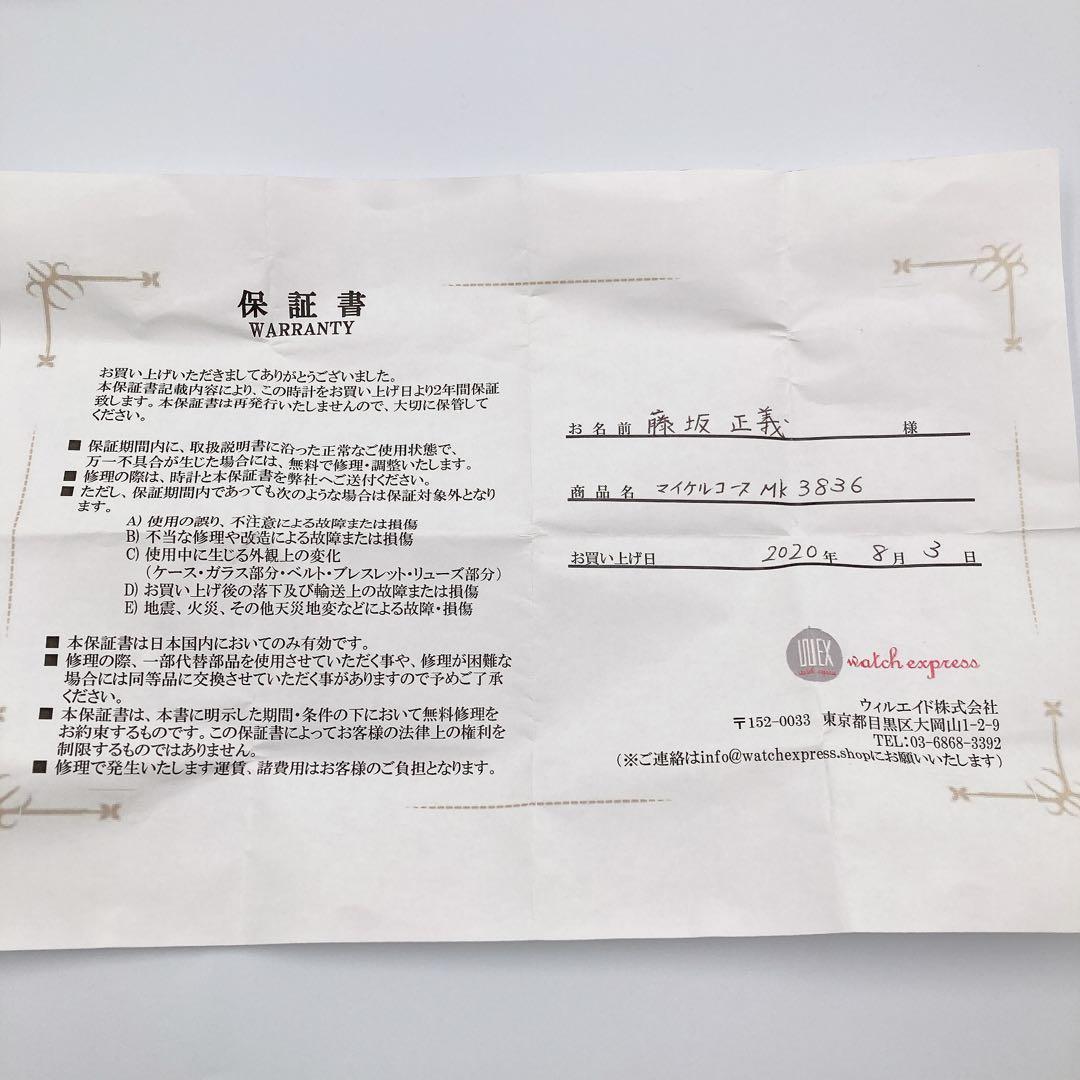 保証書
WARRANTY
お買い上げいただきましてありがとうございました。
本保証書記載内容により、この時計をお買い上げ日より2年間保証
致します。本保証書は再発行いたしませんので、大切に保管して
ください。
■ 保証期間内に、取扱説明書に沿った正常なご使用状態で、
万一不具合が生じた場合には、無料で修理・調整いたします。
■ 修理の際は、時計と本保証書を弊社へご送付ください。
■ ただし、保証期間内であっても次のような場合は保証対象外となり
ます。
A) 使用の誤り、不注意による故障または損傷
B) 不当な修理や改造による故障または損傷
C) 使用中に生じる外観上の変化
(ケース・ガラス部分・ベルト・ブレスレット・リューズ部分)
D) お買い上げ後の落下及び輸送上の故障または損傷
E) 地震、火災、その他天災地変などによる故障・損傷
■ 本保証書は日本国内においてのみ有効です。
■ 修理の際、一部代替部品を使用させていただく事や、修理が困難な
場合には同等品に交換させていただく事がありますので予めご了承
ください。
■ 本保証書は、本書に明示した期間・条件の下において無料修理を
お約束するものです。この保証書によってお客様の法律上の権利を
制限するものではありません。
■ 修理で発生いたします運賃、諸費用はお客様のご負担となります。
お名前 藤坂 正義 様
商品名 マイケルコース Mk 3836
お買い上げ日 2020年 8月 3日
watch express
ウィルエイド株式会社
〒152-0033 東京都目黒区大岡山1-2-9
TEL:03-6868-3392
(※ご連絡はinfo@watchexpress.shopにお願いいたします)